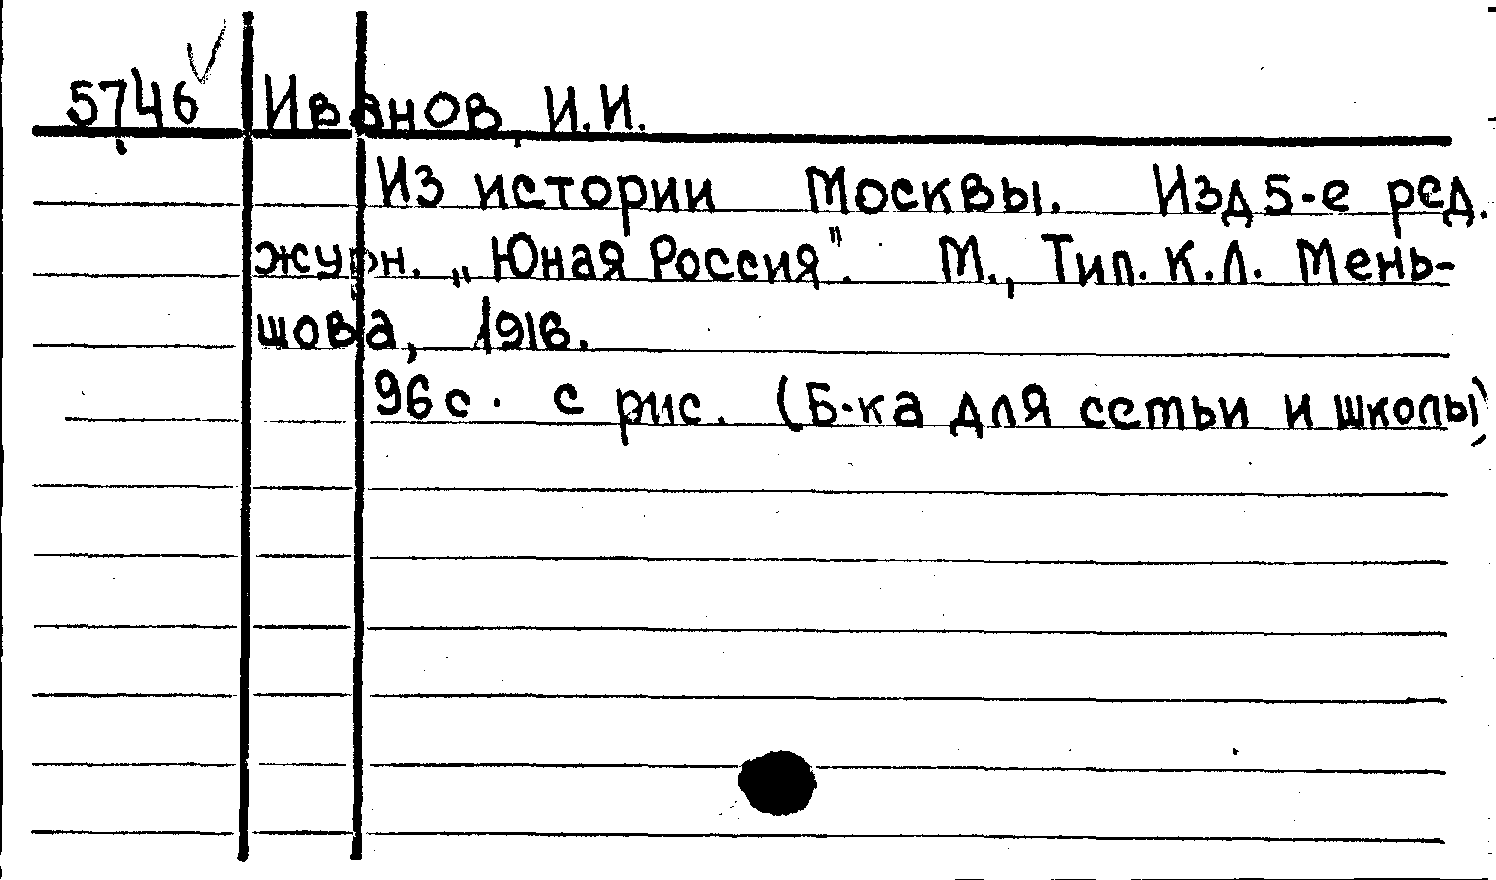 5746 Иванов, И.И.
Из истории Москвы. Изд 5-е ред.
журн. „Юная Россия". М., Тип. К.Л. Мень-
шова, 1916.
96 с. с рис. (Б-ка для семьи и школы)